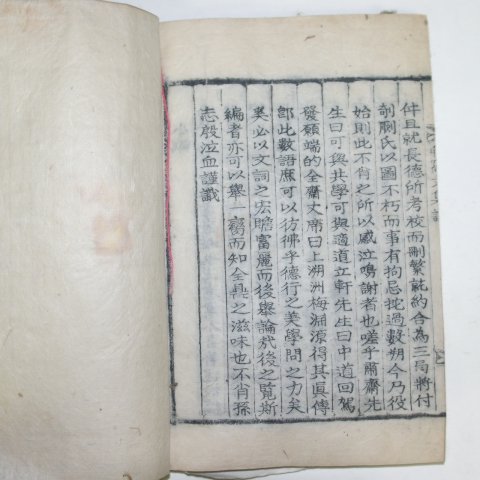 件且就長德所考校而刪繁就約合為三局將付
剞劂氏以圖不朽而事有拘忌拕過數朔今乃役
始則此不肖之所以感泣鳴謝者也嗟乎爾齋先
生曰可與共學可與適道立軒先生曰中道回駕
發願端的全齋丈席曰上溯洲梅淵源得其眞傳
郎此數語庶可以彷彿乎德行之美學問之力矣
奚必以文詞之宏贍富麗而後擧論哉後之覧斯
編者亦可以擧一臠而知全鼎之滋味也不肖孫
志殷泣血謹識